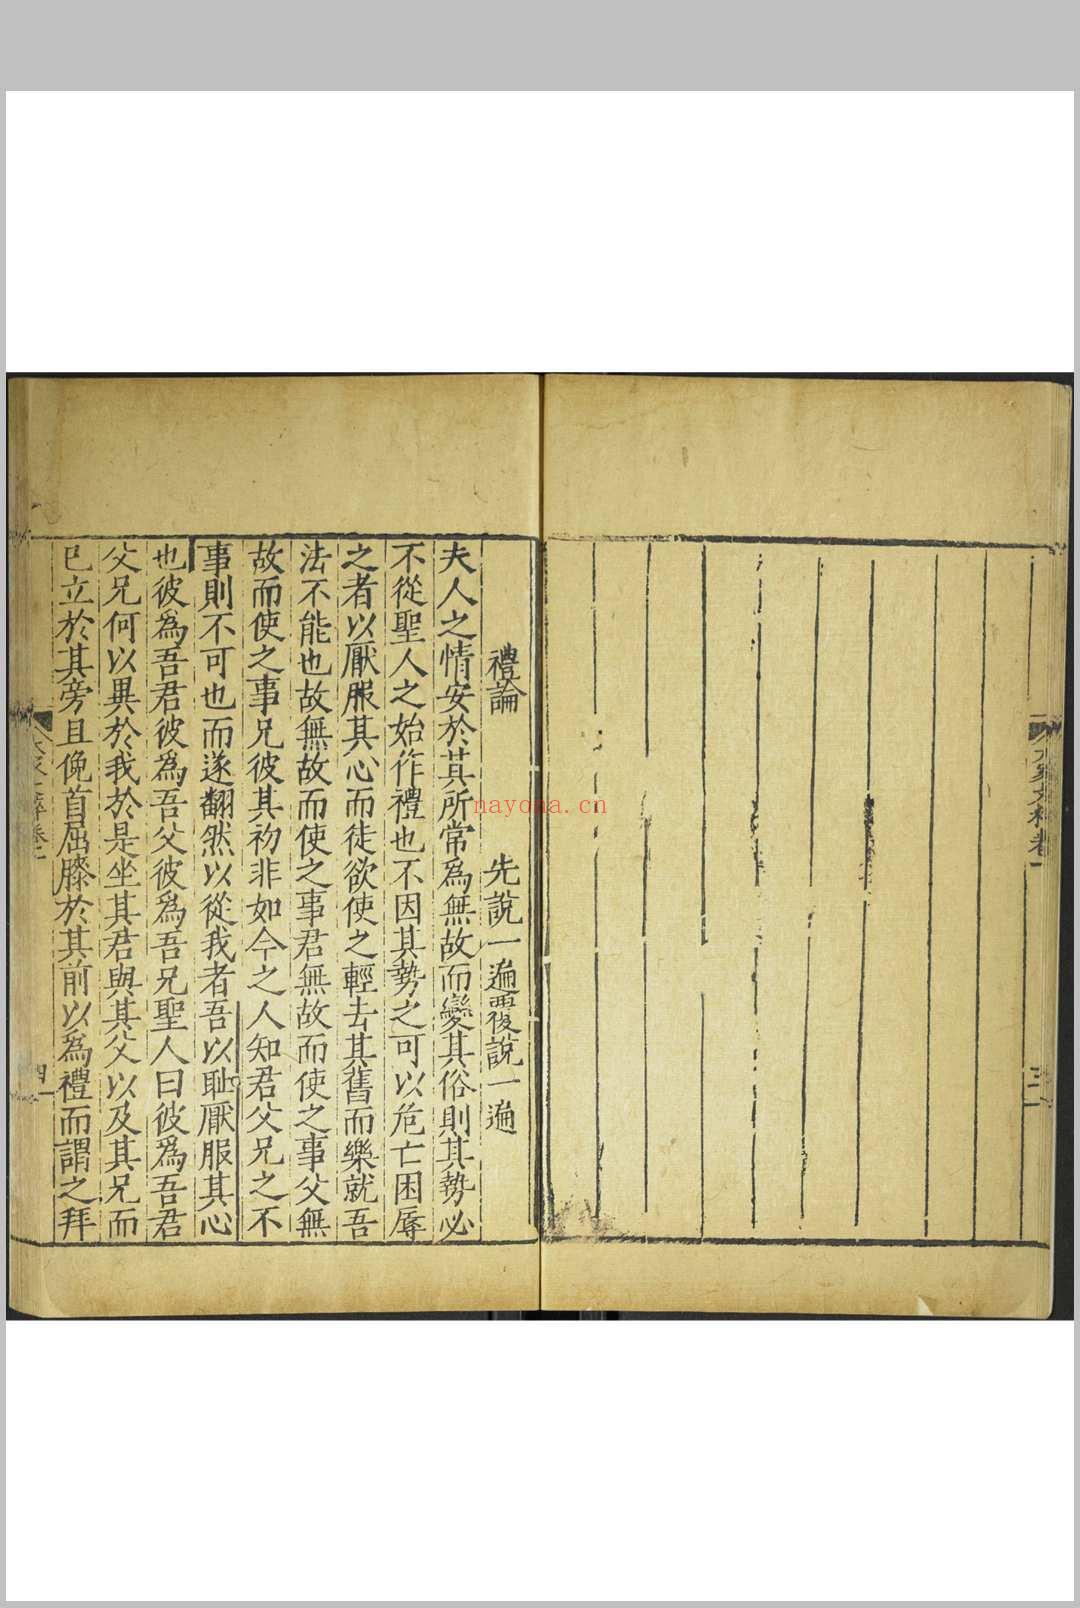 家文粹卷一
三
禮論 先說一遍覆說一遍
夫人之情安於其所常爲無故而變其俗則其勢必
不從聖人之始作禮也不因其勢之可以危亡困辱
之者以厭服其心而徒欲使之輕去其舊而樂就吾
法不能也故無故而使之事君無故而使之事父無
故而使之事兄彼其初非如今之人知君父兄之不
事則不可也而遂翻然以從我者吾以耻厭服其心
也彼爲吾君彼爲吾父彼爲吾兄聖人曰彼爲吾君
父兄何以異於我於是坐其君與其父以及其兄而
已立於其旁且俛首屈膝於其前以爲禮而謂之拜
卷一
四
nayona.cn